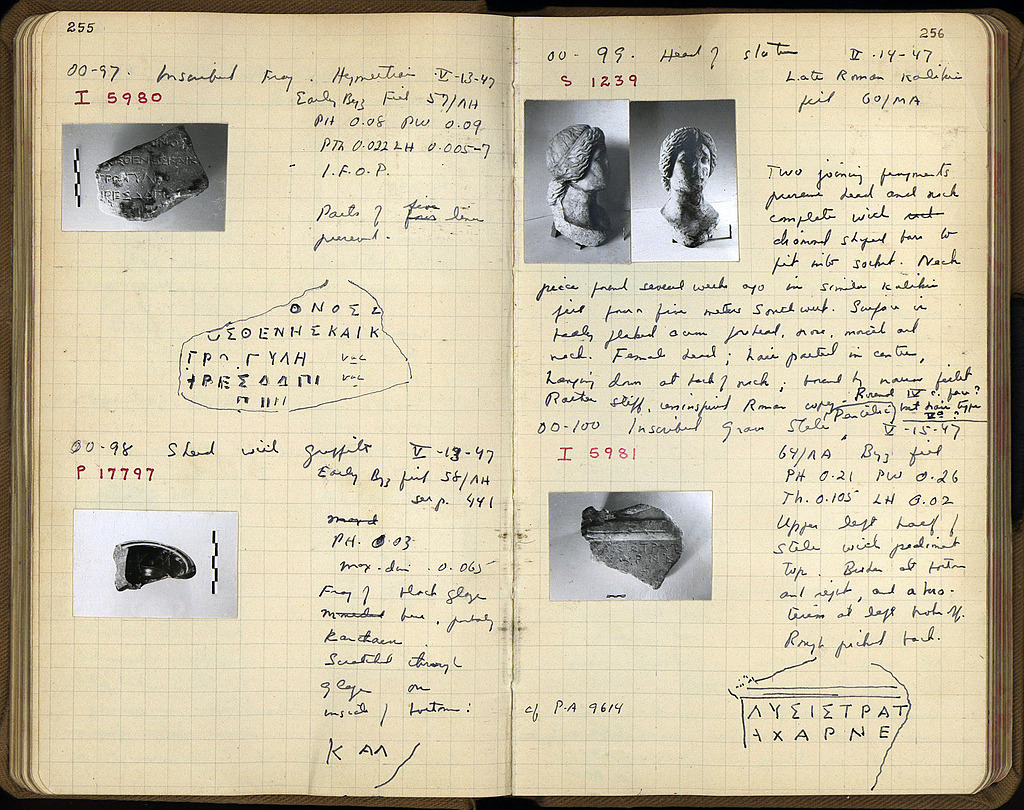 255
OO-97. Inscribed Frag. Hymettian V-13-47
I 5980
Early Byz fill 57/ΛΗ
PH 0.08 PW 0.09
PTh 0.022 LH 0.005-7
I.F.O.P.
Parts of five lines
preserved.
ΟΝΟΣ
ΣΘΕΝΗΣΚΑΙΚ
ΓΥΛΗ vac
ΡΕΣΔΔΠΙ vac
ΠΙΙΙΙ
OO-98 Sherd with graffito V-13-47
P 17797
Early Byz fill 58/ΛΗ
see p. 441
PH. 0.03
max. dim. 0.065
Frag of black glaze
base, probably
Kantharos.
Scratched through
glaze on
inside / bottom:
ΚΑΛ
256
OO-99. Head of statue V-14-47
S 1239
Late Roman Kaliki
fill 60/ΜΑ
Two joining fragments
preserve head and neck
complete with
diamond shaped base to
fit into socket. Neck
piece found several weeks ago in similar Kaliki
fill four five meters Southwest. Surface is
badly flaked across forehead, nose, mouth and
neck. Female head; hair parted in centre,
hanging down at back of neck; bound by narrow fillet
Rather stiff, uninspired Roman copy.
Pentelic
OO-100 Inscribed Grave Stele V-15-47
I 5981
64/ΛΑ Byz fill
PH 0.21 PW 0.26
Th. 0.105 LH 0.02
Upper left half of
Stele with pediment
top. Broken at bottom
and right, and akro-
terion at left broken off.
Rough picked back.
cf P.A 9614
ΛΥΣΙΣΤΡΑΤ
ΑΧΑΡΝΕ